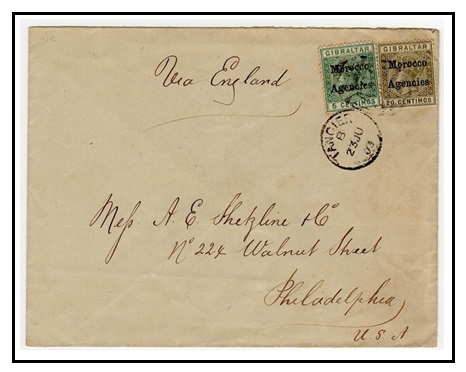 Via England
GIBRALTAR
Morocco
Agencies
5 CENTIMOS
GIBRALTAR
Morocco
Agencies
20 CENTIMOS
TANGIER
B
23 JU
03
Messs. A. E. Shetzline & Co
No. 224 Walnut Street
Philadelphia
U.S.A